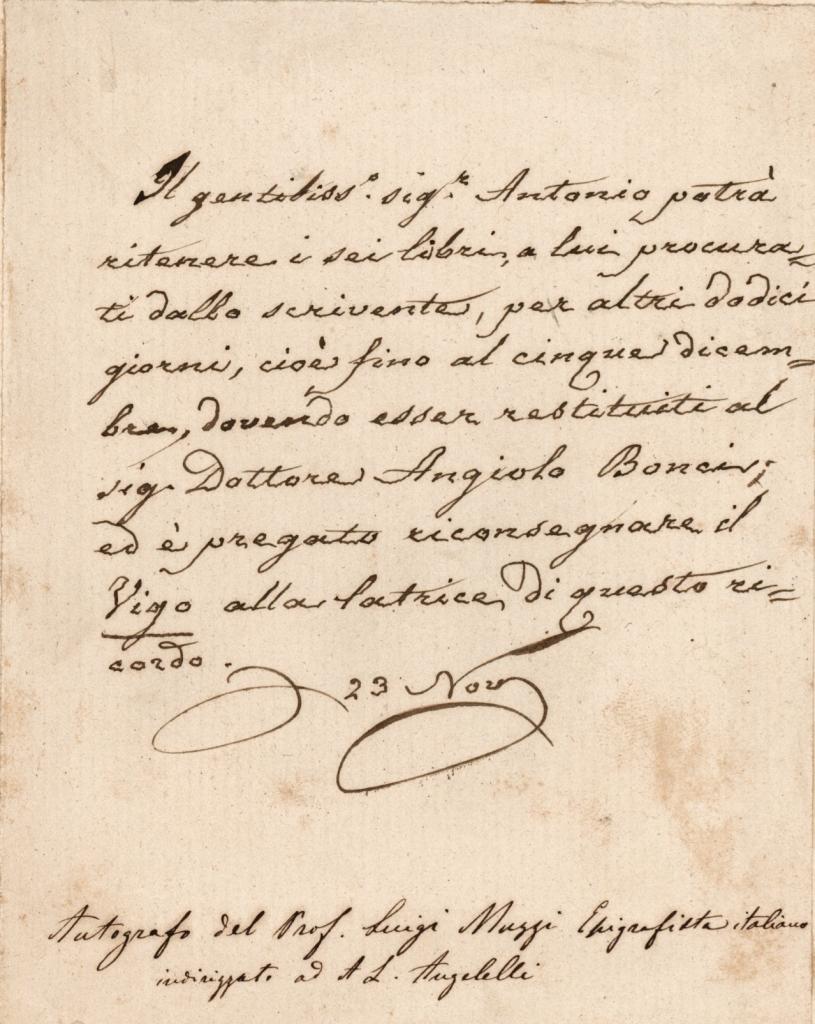 Il gentiliss.º sig.r Antonio potrà
ritenere i sei libri, a lui procura=
ti dallo scrivente, per altri dodici
giorni, cioè fino al cinque dicem=
bre, dovendo esser restituiti al
sig. Dottore Angiolo Bonci;
ed è pregato riconsegnare il
Vigo alla latrice di questo ri=
cordo.
23 Nov
Autografo del Prof. Luigi Muzzi Epigrafista italiano
indirizzato ad A L. Angelelli